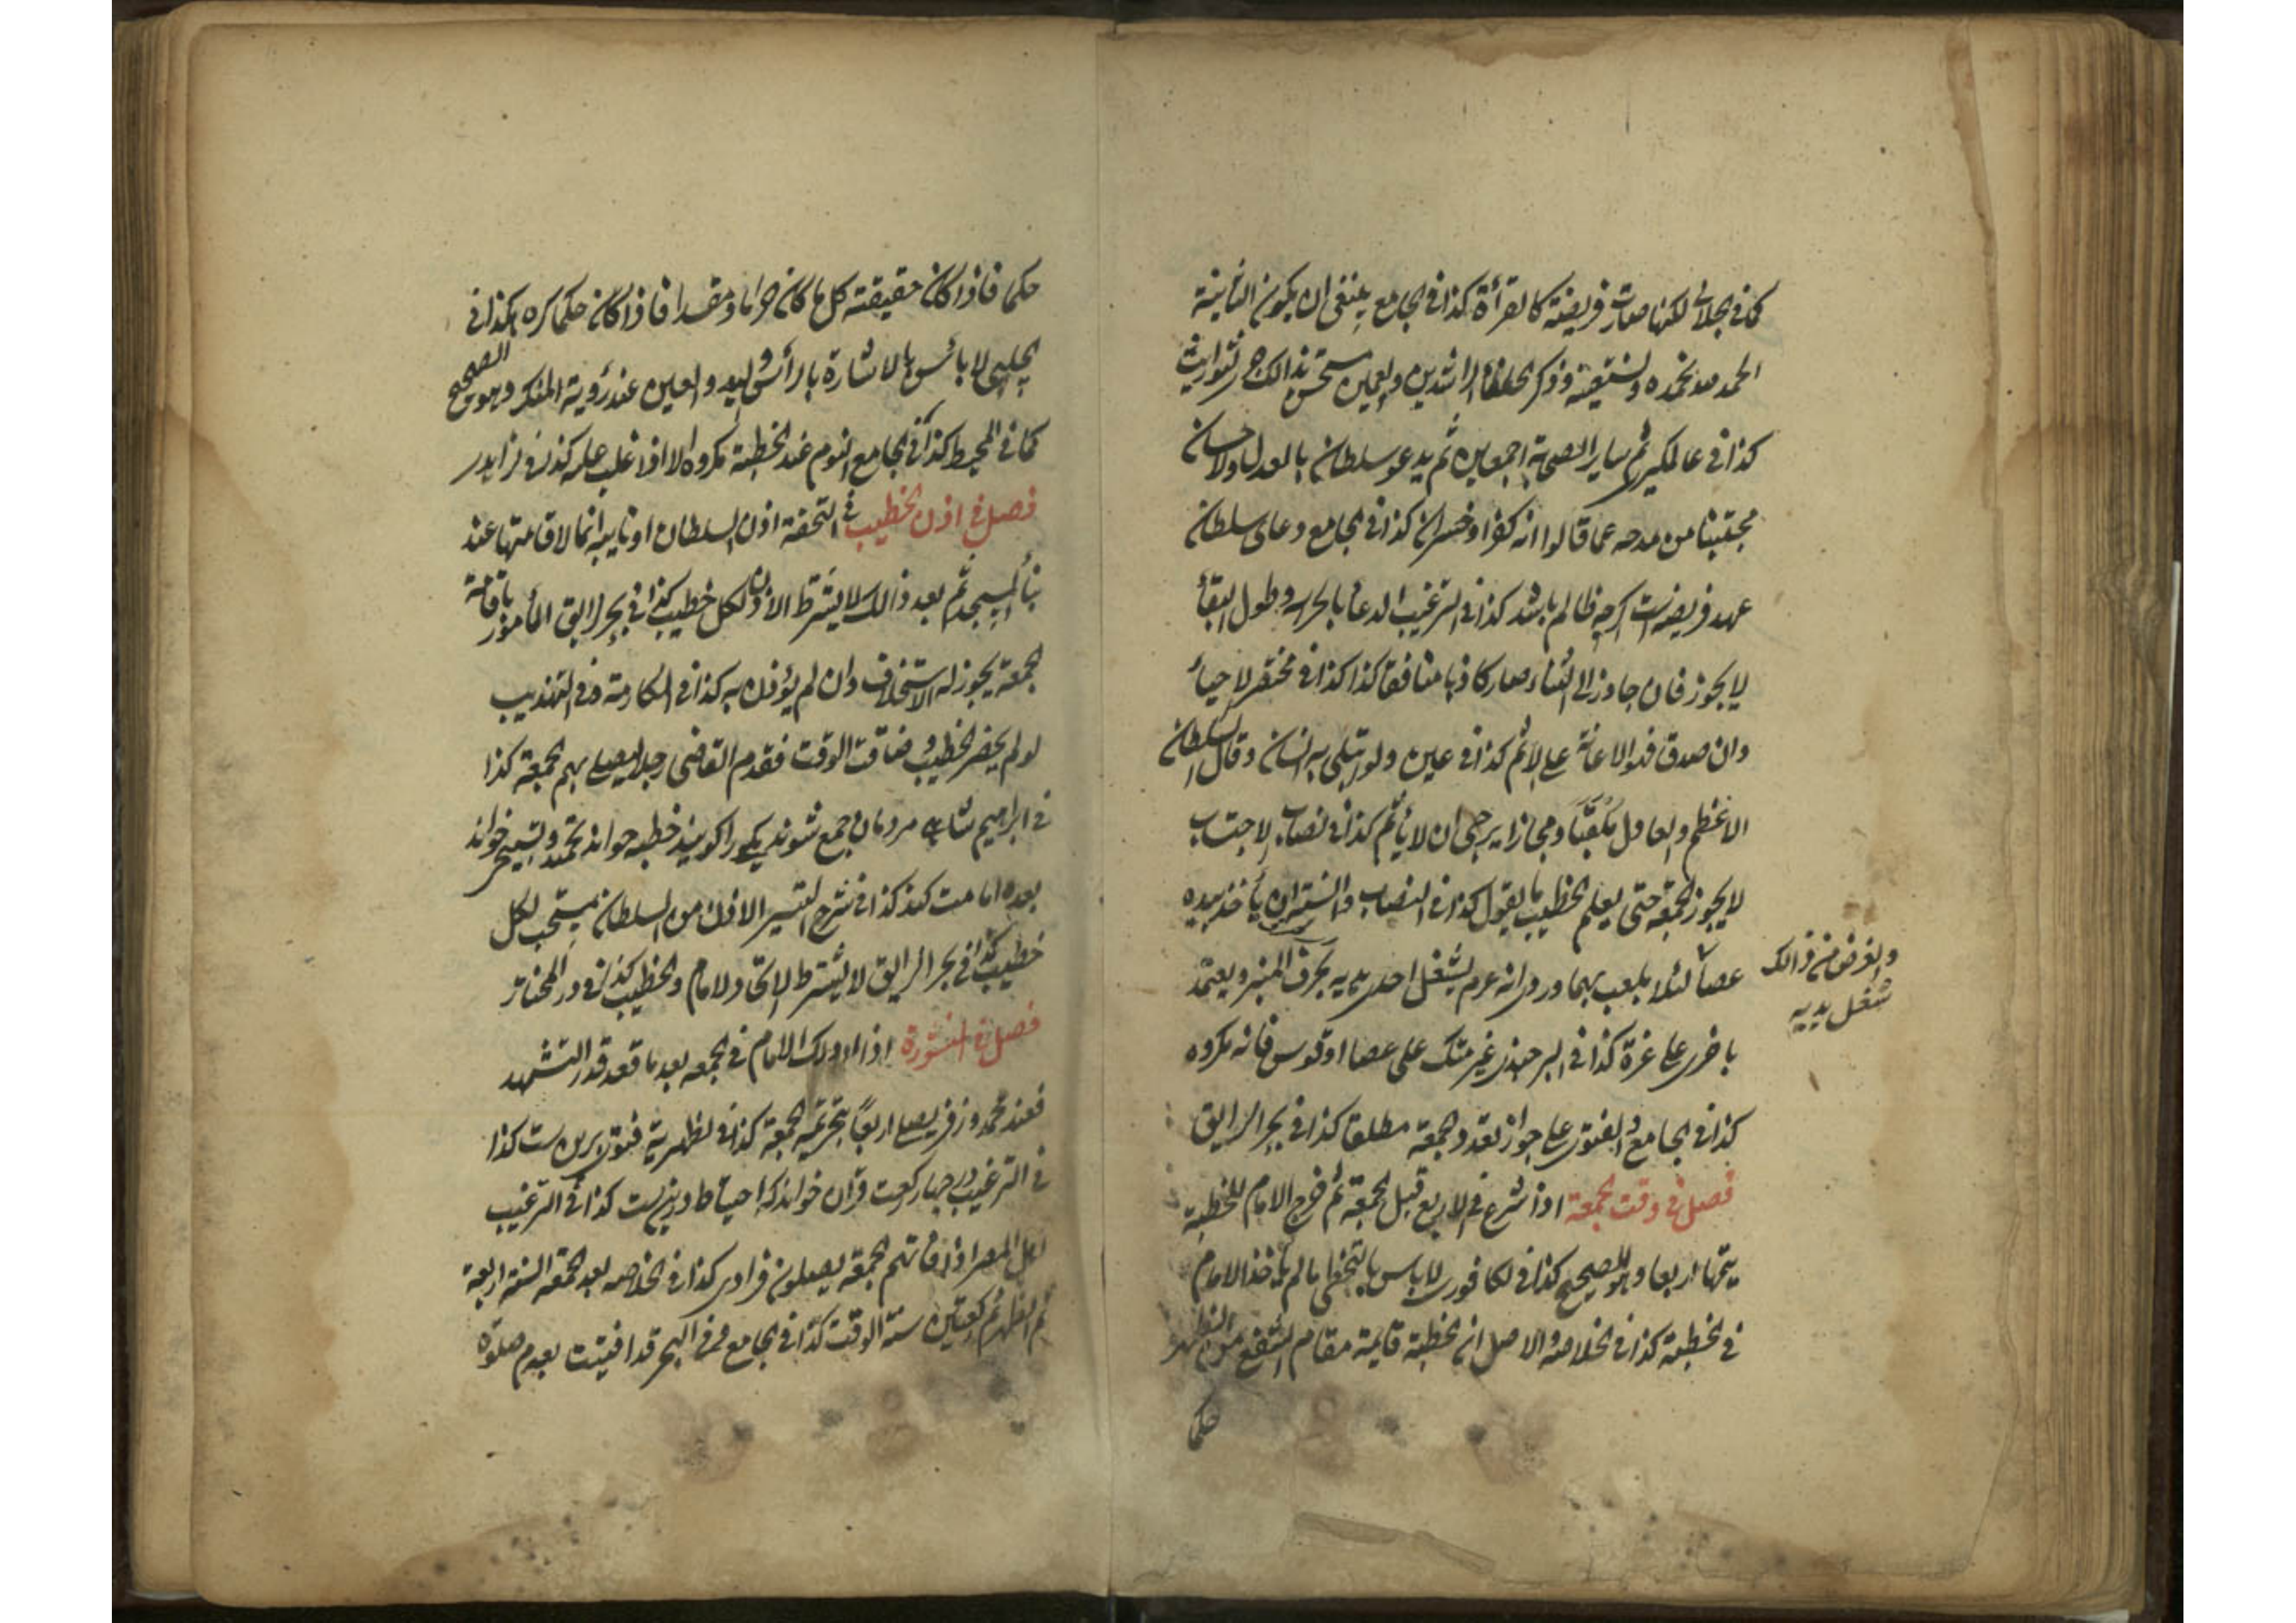 كما في الجلابي لكنها صارت فريضة كالقرأة كذا في الجامع ينبغي ان يكون الثانية
الحمد لله نحمده ونستعينه وذكر الخلفاء الراشدين والعمين مستحسن بذالك جر التوارث
كذا في عالمكير ثم ساير الصحابة اجمعين ثم يدعو سلطان بالعدل والاحسان
مجتنبا من مدحه عما قالوا انه كفر او خسران كذا في الجامع دعاى سلطان
عهد فريضه است اكرچه ظالم باشد كذا في الترغيب الدعا بالحراسه وطول البقأ
لا يجوز فان جاوز الى الثناء صار كاذبا منافقا كذا كذا في مختصر الاحيأ
وان صدق فهو الاعانة على الاثم كذا في عين ولو ابتلى به انسان وقال السلطان
الاعظم والعادل ومجازا يرجى ان لا يأثم كذا في نصاب الاحتساب
لا يجوز الجمعة حتى يعلم الخطيب ما يقول كذا في النصاب يأخذ بيده
عصا لئلا يلعب بهما يشغل احدى يديه بحرف المنبر ويعتمد
والغرض من ذالك
شغل يديه
باخرى على غزة كذا في غير متك على عصا او قوس فانه مكروه
كذا في الجامع والفتوى على جواز تعدد الجمعة مطلقا كذا في بحر الرايق
فصل في وقت الجمعة اذا شرع في الاربع قبل الجمعة ثم خرج الامام للخطبة
يتمها اربعا وهو الصحيح كذا في الكافورى لا باس بالتخطى ما لم يأخذ الامام
في الخطبة كذا في الخلاصه والاصل ان الخطبة قايمة مقام الشفع من الظهر
حكما
حكما فاذا كان حقيقته كل ما كان حراما ومفسدا فاذا كان حكما كره كذا في
الجلبي لا بائس بالاشارة بالرأس واليد والعين عند رؤية المنكر وهو الصحيح
كما في المحيط كذا في الجامع النوم عند الخطبة مكروه الا اذا غلب عليه كذا في
فصل في اذن الخطيب في التحفة اذن السلطان او نايبه انما لاقامتها عند
بنأ المسجد ثم بعد ذالك لا يشترط الاذن لكل خطيب كذا في بحر الرايق المأمور باقامة
الجمعة يجوز له الاستخلاف وان لم يؤذن به كذا في وفي التهذيب
لو لم يحضر الخطيب وضاقت الوقت فقدم القاضى رجلا ليصلى بهم الجمعة كذا
في ابراهيم شاهي مردمان جمع شوند يكى را كويند خطبه خواند تحميد وتسبيح خواند
بعده امامت كند كذا في شرح التيسير الاذن من السلطان مستحب لكل
خطيب كذا في بحر الرايق لا يشترط الاتحاد الامام والخطيب كذا في در المختار
فصل في اذا ادرك الامام في الجمعه بعد ما قعد قدر التشهد
فعند محمد وزفر يصلى اربعا بتحريمة الجمعة كذا في الظهرية فتوى برين ست كذا
في الترغيب در چهار ركعت قرآن خواند كه احتياط درينست كذا في الترغيب
اهل المصر اذا فاتهم الجمعة يصلون فرادى كذا في الخلاصه بعد الجمعة السنة اربعة
ثم الظهر ثم ركعتين سنة الوقت كذا في الجامع وفي البحر قد افتيت بعدم صلوة